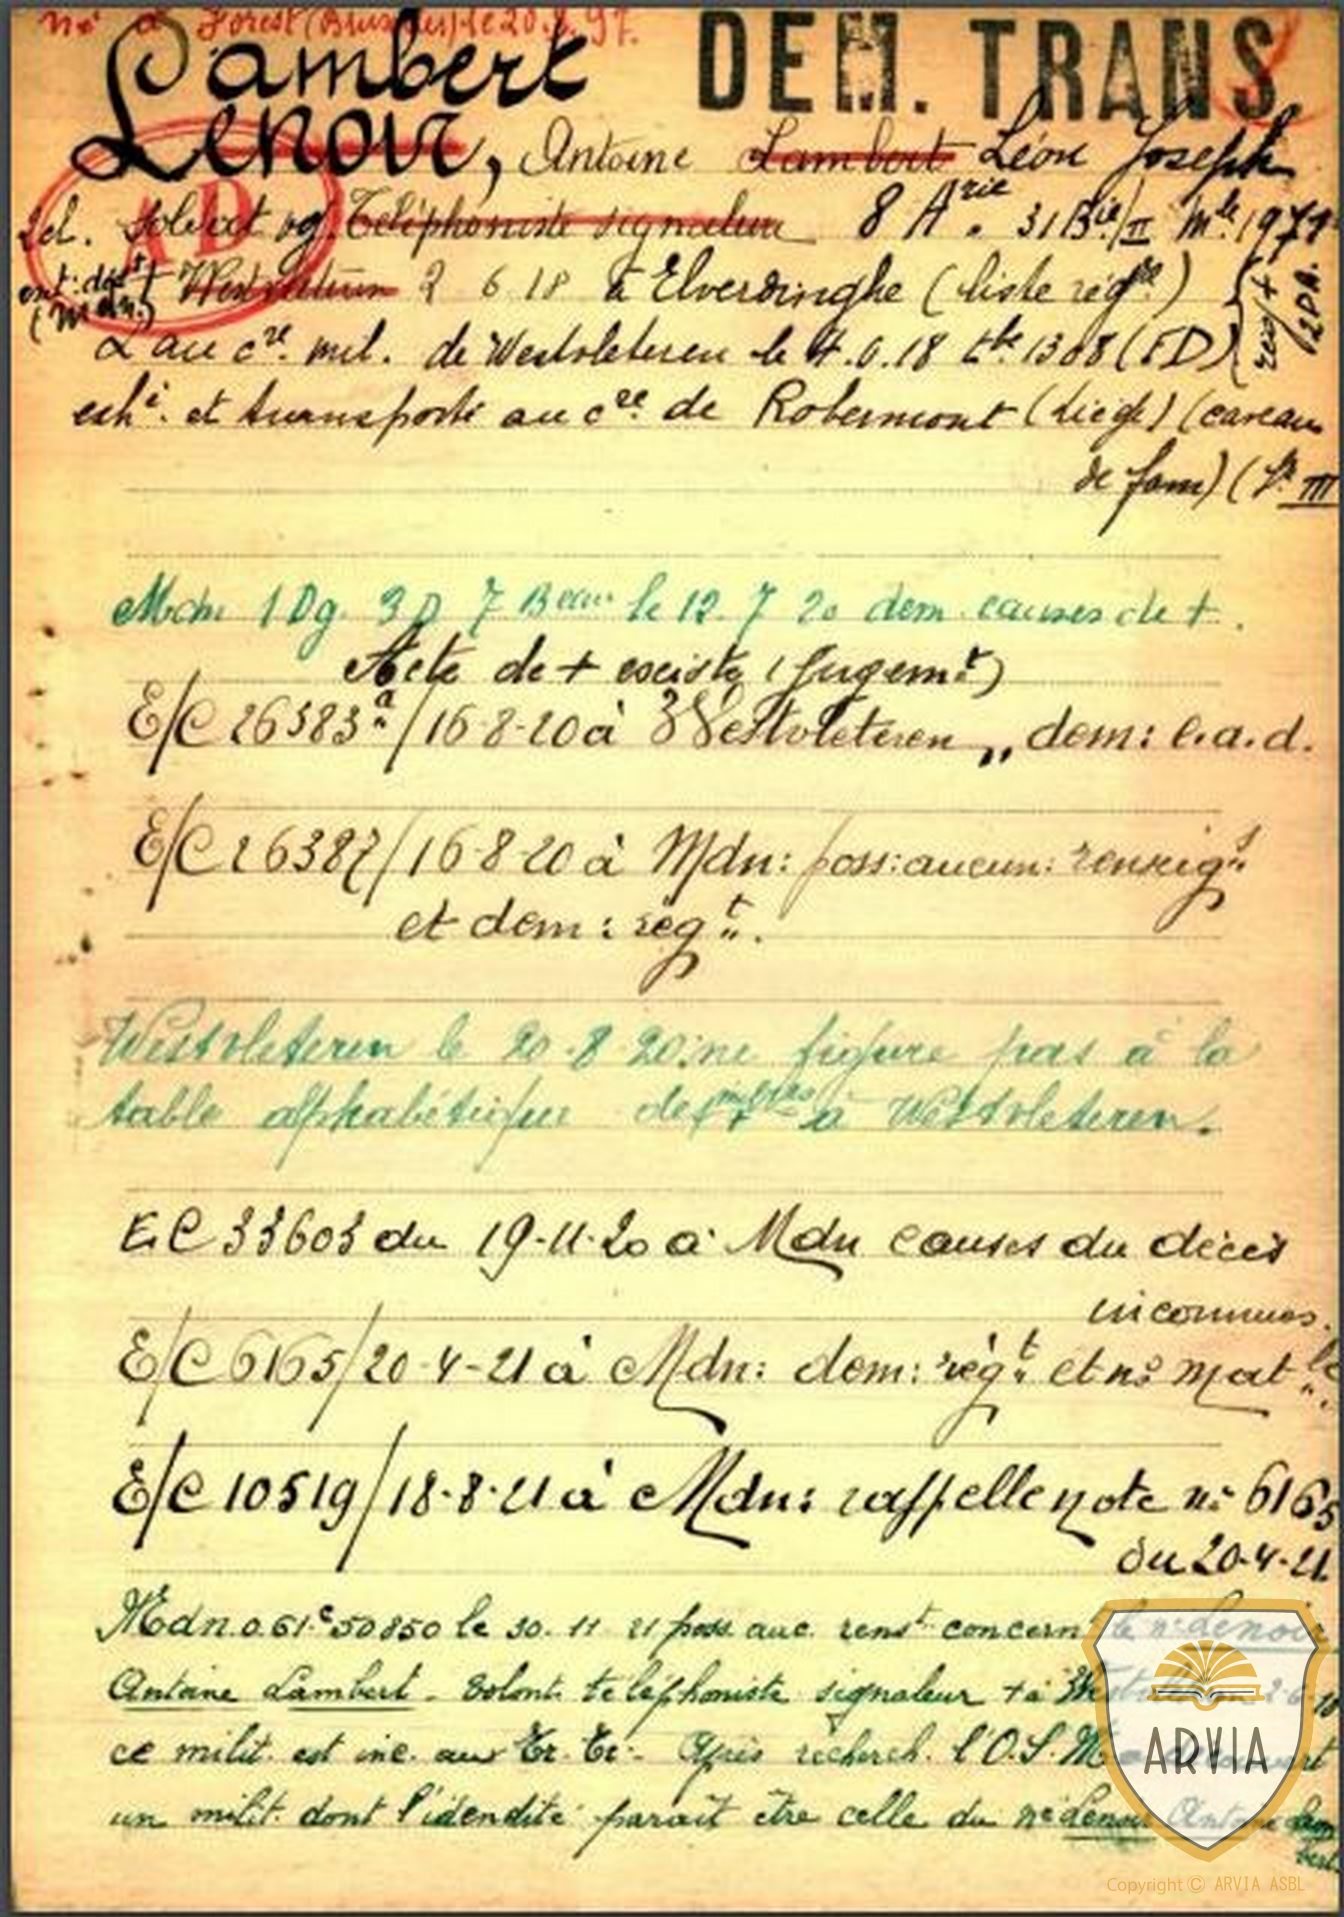 né à Forest (Bruxelles) le 20. . 97.
DEM. TRANS
Lambert
Lenoir, Antoine Lambert Léon Joseph
AD
soldat Téléphoniste signaleur 8 Arie. 31 Bie/II Mle 197
Westvleteren 2 6 18 à Elverdinghe (liste régre)
(Mdn.)
au cre. mil. de Westvleteren le 4.6.18 tbe 1308 (FD)
exhé. et transporté au cre de Robermont (Liège) (caveau
de fam) ( III
Mdn 1 Dg. 3 D 7 Beau le 12. 7 20 dem. causes de +.
Acte de + existe (Jugemt)
E/C 26383a/16-8-20 à Westvleteren, dem: e.a.d.
E/C 26387/16-8-20 à Mdn: poss: aucun: renseigts
et dem: régt.
Westvleteren le 20-8 20: ne figure pas à la
table alphabétique des + à Westvleteren.
E.C 33603 du 19-11-20 à Mdn causes du décès
inconnues.
E/C 6165/20-4-21 à Mdn: dem: régt et no matle
E/C 10519/18-8-21 à Mdn: rappelle note no 6165
du 20-4-21
Mdn 50850 le 30. 11 21 poss. auc. renst concern le né Lenoir
Antoine Lambert. Volont. téléphoniste signaleur + à 2-6-18
ce milit. est inc. aux Tr. Tr. Après recherch. l'O.S.M a découvert
un milit. dont l'idendité parait être celle du né Lenoir Antoine Lam
bert
ARVIA
Copyright © ARVIA ASBL